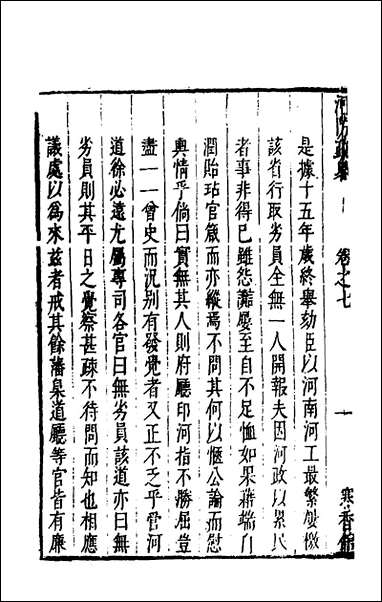 河防疏略
卷之七
一
寒香館
是據十五年歲終舉劾臣以河南河工最繁屢檄
該省行取劣員全無一人開報夫因河政以累民
者事非得已雖怨讟屢至自不足恤如果蔣端自
潤貽玷官箴而亦縱焉不問其何以愜公論而慰
輿情乎倘曰實無其人則府廳印河指不勝屈豈
盡一一曾史而況別有發覺者又正不乏乎管河
道徐必遠尤屬專司各官曰無劣員該道亦曰無
劣員則其平日之覺察甚疎不待問而知也相應
議處以為來茲者戒其餘藩臬道廳等官皆有廉